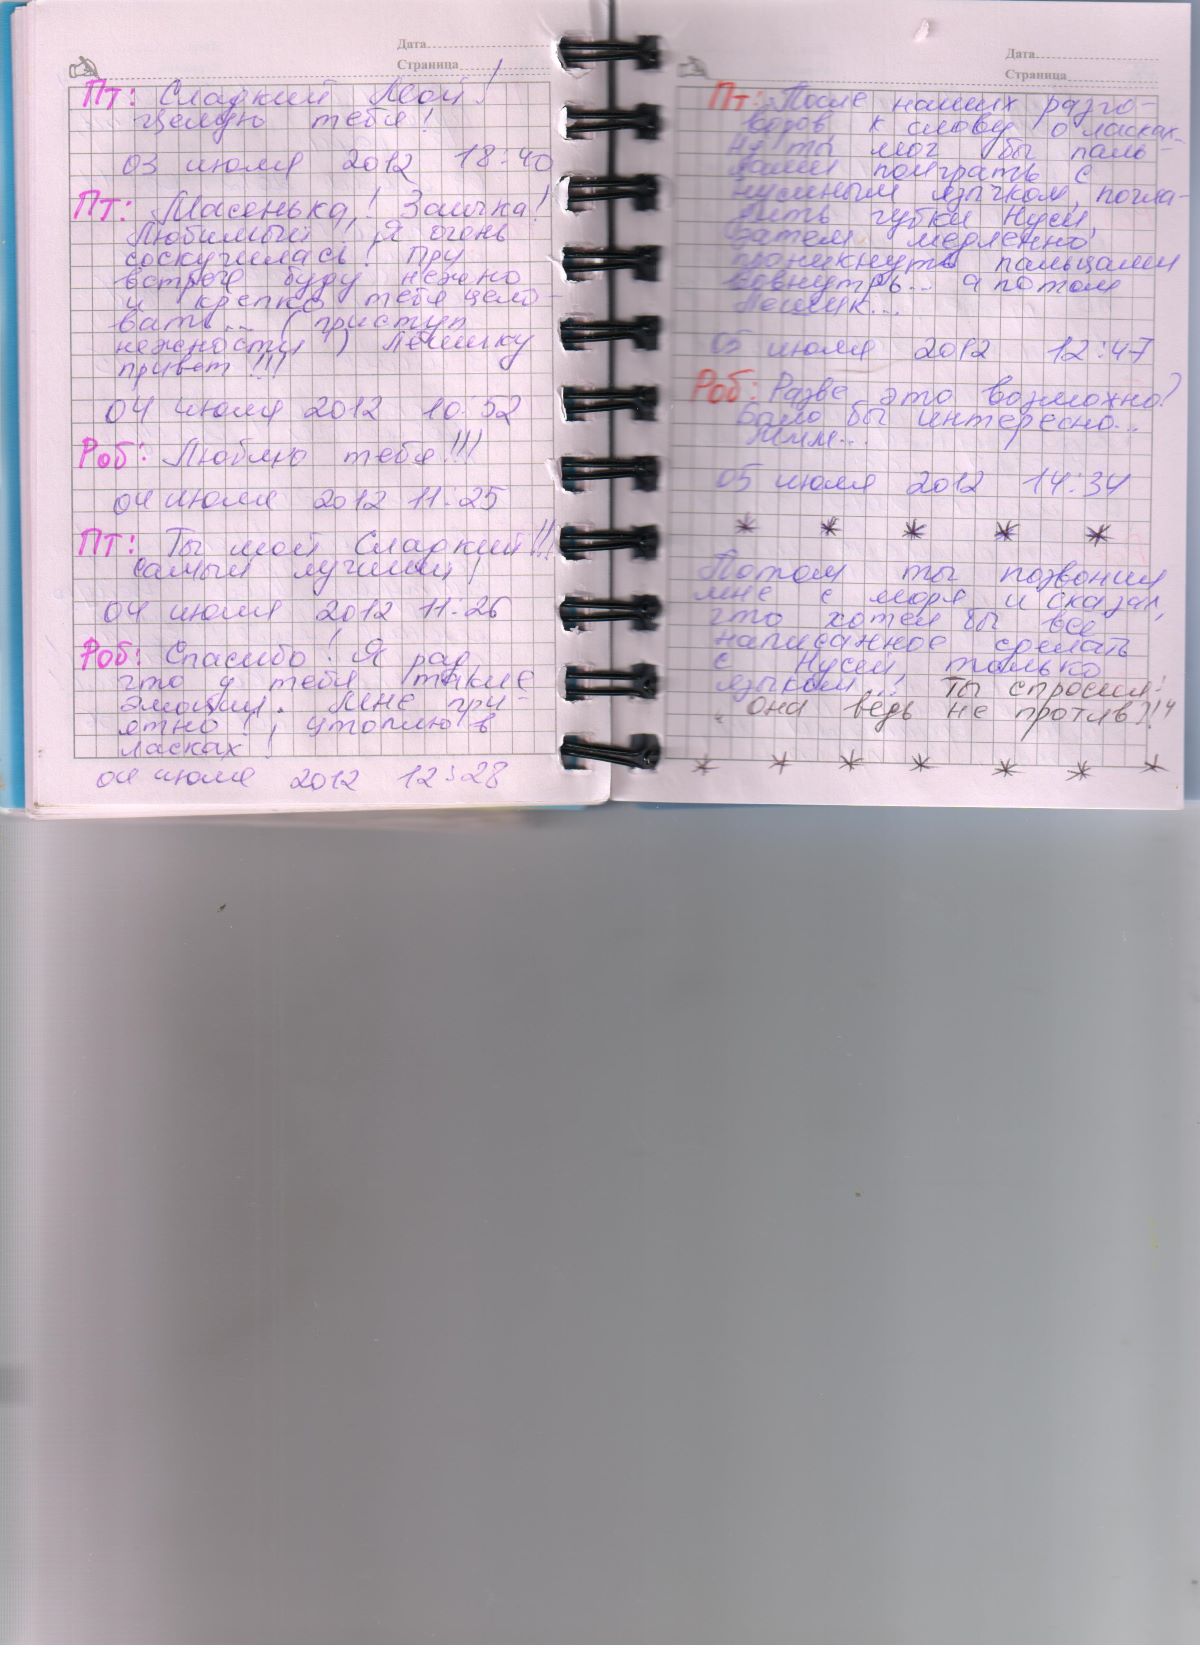 Дата
Страница
Пт: Сладкий мой!
Целую тебя!
03 июля 2012 18:40
Пт: Масенька! Заичка!
Любимый! Я очень
соскучилась! При
встрече буду нежно
и крепко тебя цело-
вать... (приступ
нежности) Лёшику
привет!!!
04 июля 2012 10:52
Роб: Люблю тебя!!!
04 июля 2012 11:25
Пт: Ты мой Сладкий!!!
самый лучший!
04 июля 2012 11:26
Роб: Спасибо! Я рад,
что у тебя такие
эмоции. Мне при-
ятно!, утоплю в
ласках!
04 июля 2012 12:28
Дата
Страница
Пт: После наших разго-
воров к слову о ласках
ты мог бы паль-
цами поиграть с
нусиным язычком, погла-
дить губки Нуси,
затем медленно
проникнуть пальцами
вовнутрь... а потом
05 июля 2012 12:47
Роб: Разве это возможно?
Было бы интересно...
Ммм...
05 июля 2012 14:34
* * * * *
Потом ты позвонил
мне с моря и сказал,
что хотел бы все
написанное сделать
с Нусей, только
языком... Ты спросил:
"она ведь не против?!"
* * * * * * *